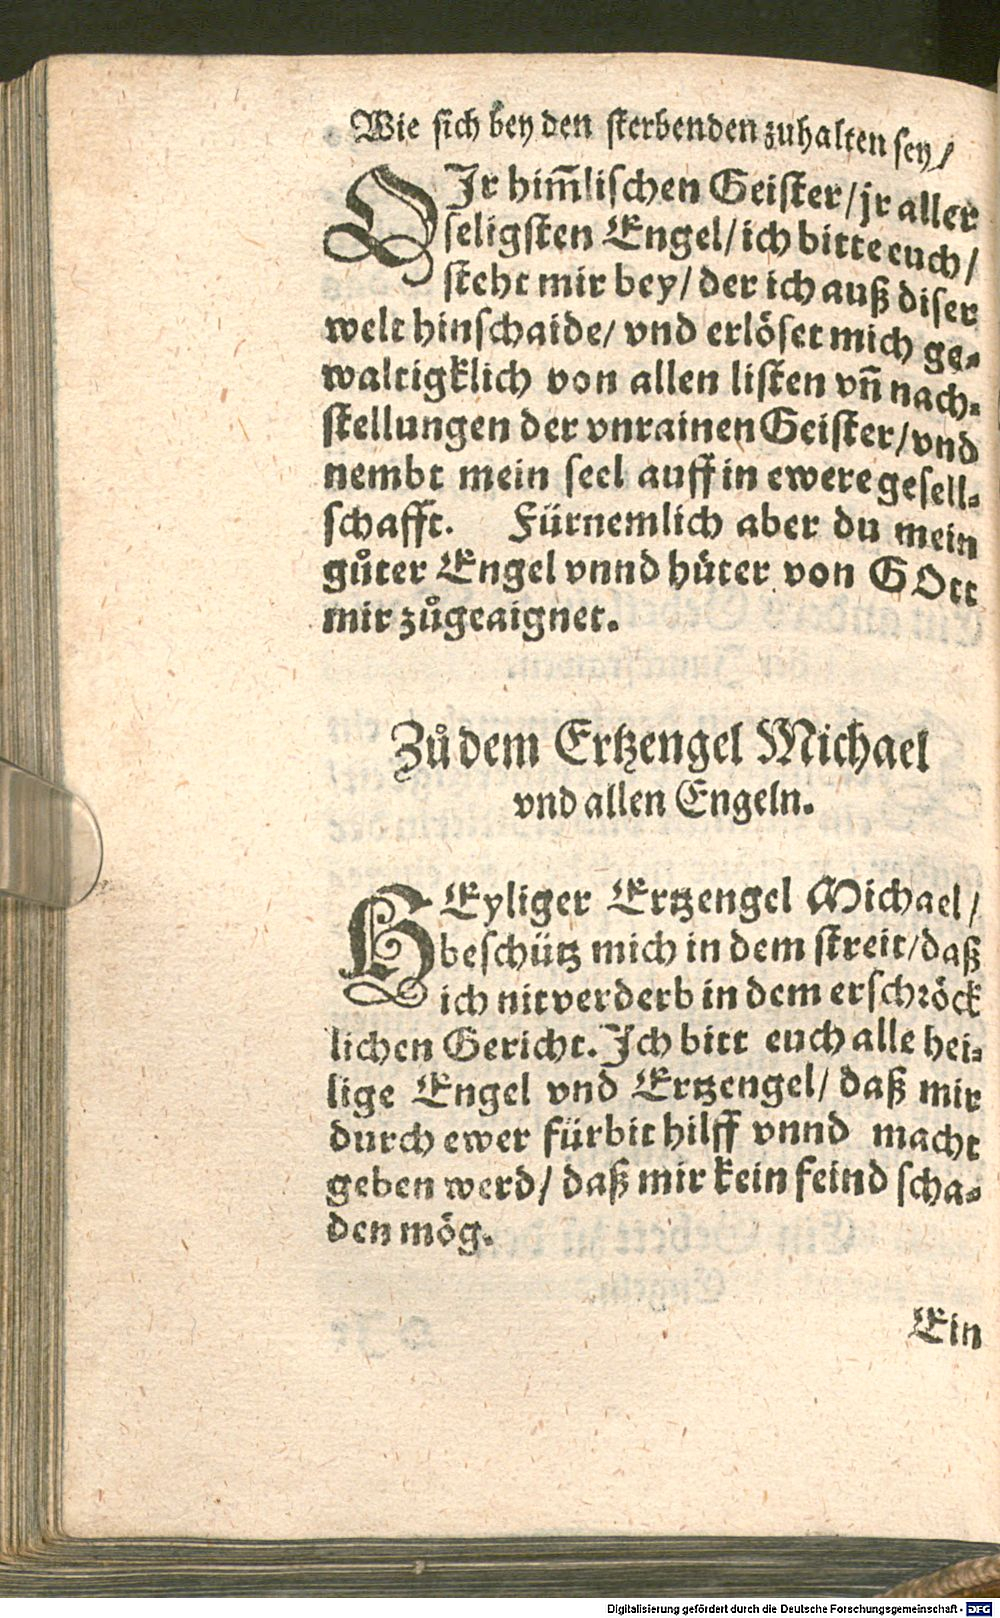 Wie sich bey den sterbenden zuhalten sey/
OJr him̄lischen Geister/jr aller
seligsten Engel/ich bitte euch/
steht mir bey/ der ich auß diser
welt hinschaide/ vnd erlöset mich ge-
waltigklich von allen listen vn̄ nach-
stellungen der vnrainen Geister/vnd
nembt mein seel auff in ewere gesell-
schafft. Fürnemlich aber du mein
gůter Engel vnnd hüter von GOtt
mir zůgeaignet.
Zů dem Ertzengel Michael
vnd allen Engeln.
HEyliger Ertzengel Michael/
beschütz mich in dem streit/daß
ich nit verderb in dem erschröck
lichen Gericht. Ich bitt euch alle hei-
lige Engel vnd Ertzengel/ daß mir
durch ewer fürbit hilff vnnd macht
geben werd/ daß mir kein feind scha-
den mög.
Ein
Digitalisierung gefördert durch die Deutsche Forschungsgemeinschaft - DFG